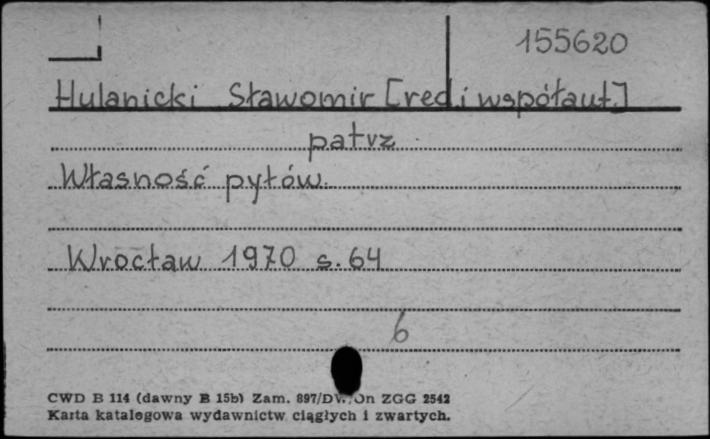 155620
Hulanicki Sławomir [red. i współaut.]
patrz
Własność pyłów.
Wrocław 1970 s. 64
6
CWD B 114 (dawny B 15b) Zam. 897/DW./On ZGG 2542
Karta katalogowa wydawnictw ciągłych i zwartych.